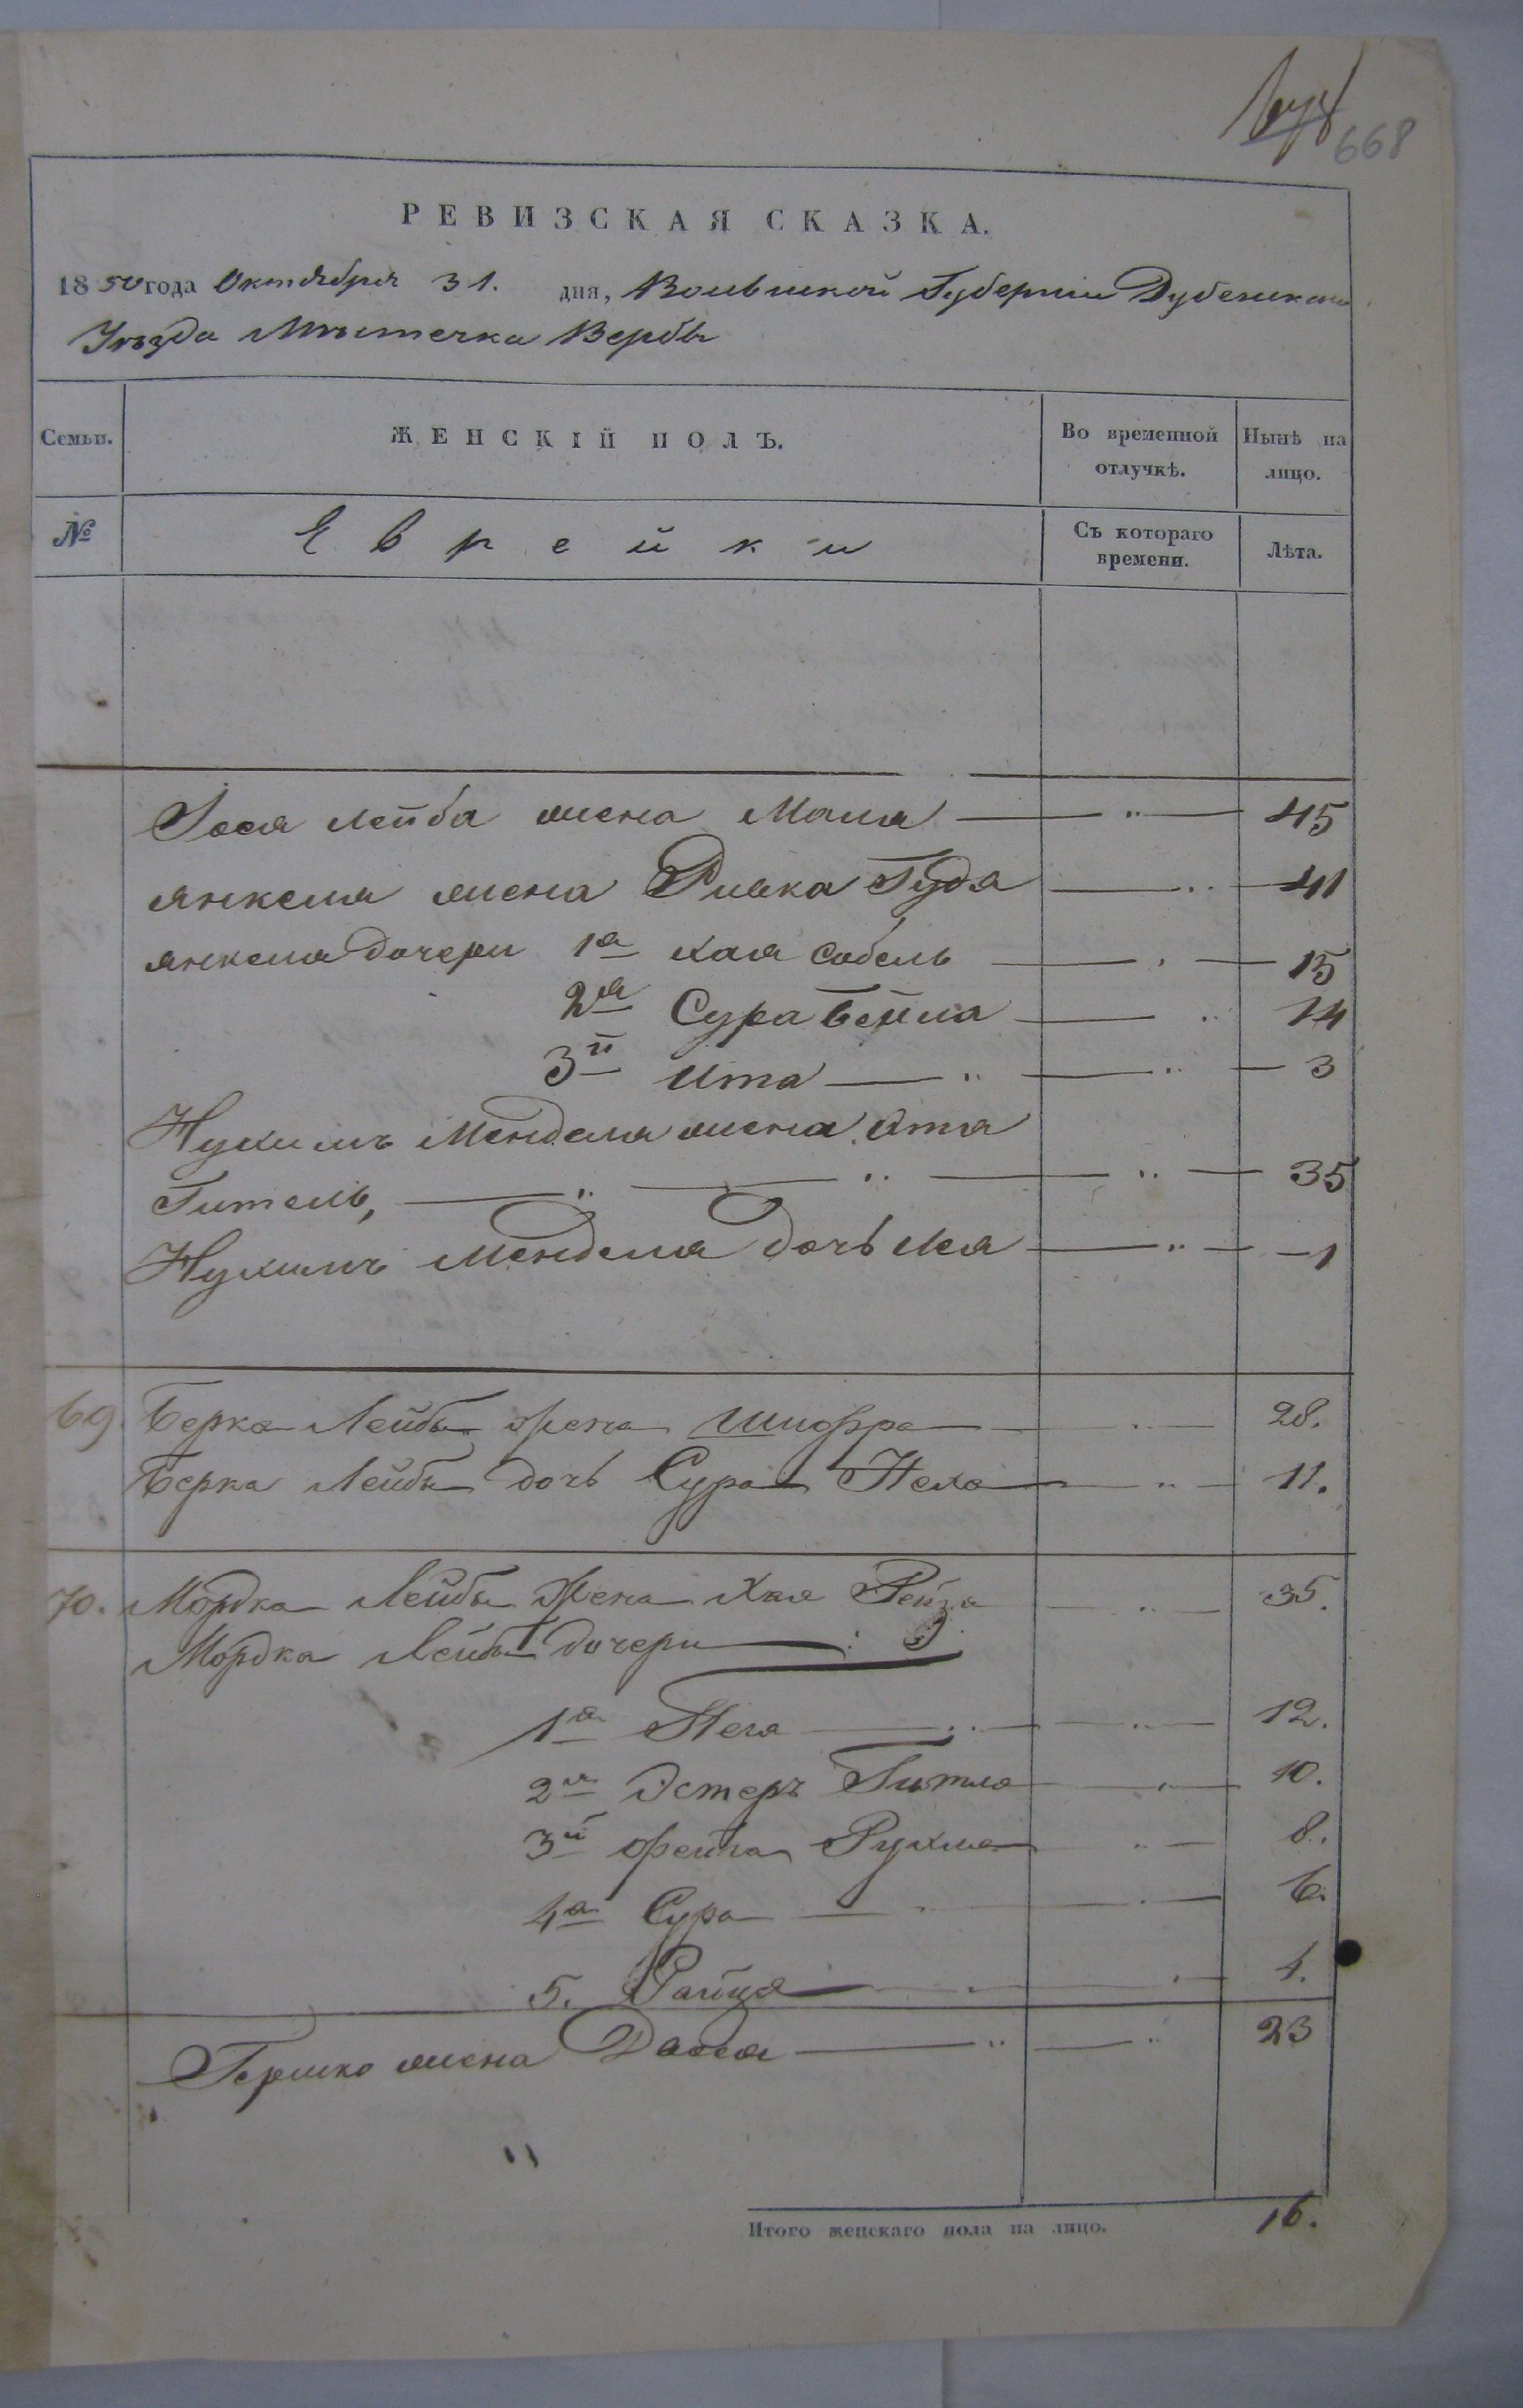 668
РЕВИЗСКАЯ СКАЗКА.
1850 года Октября 31. дня, Волынской Губернии Дубенскаго
Уѣзда Мѣстечка Вербы
Семьи. ЖЕНСКІЙ ПОЛЪ. Во временной отлучкѣ. Нынѣ на лицо.
№ Еврейки Съ котораго времени. Лѣта.
Іося Лейба жена Маля 45
Янкеля жена Ривка Гудя 41
Янкеля дочери 1я Хая Собель 15
2я Сура Бейла 14
3й Ита 3
Нухимъ Менделя жена
Гитель, 35
Нухимъ Менделя дочь Лея 1
69. Берка Лейбы жена Шифра 28.
Берка Лейбы дочь Сура Неха 11.
70. Мордка Лейбы жена Хая Рейзя 35.
Мордка Лейбы дочери
1я 12.
2я Эстеръ Гитля 10.
3й Фейга Рухля 8.
4я Сура 6.
5. Райця 4.
Гершко жена Дася 23
Итого женскаго пола на лицо. 16.